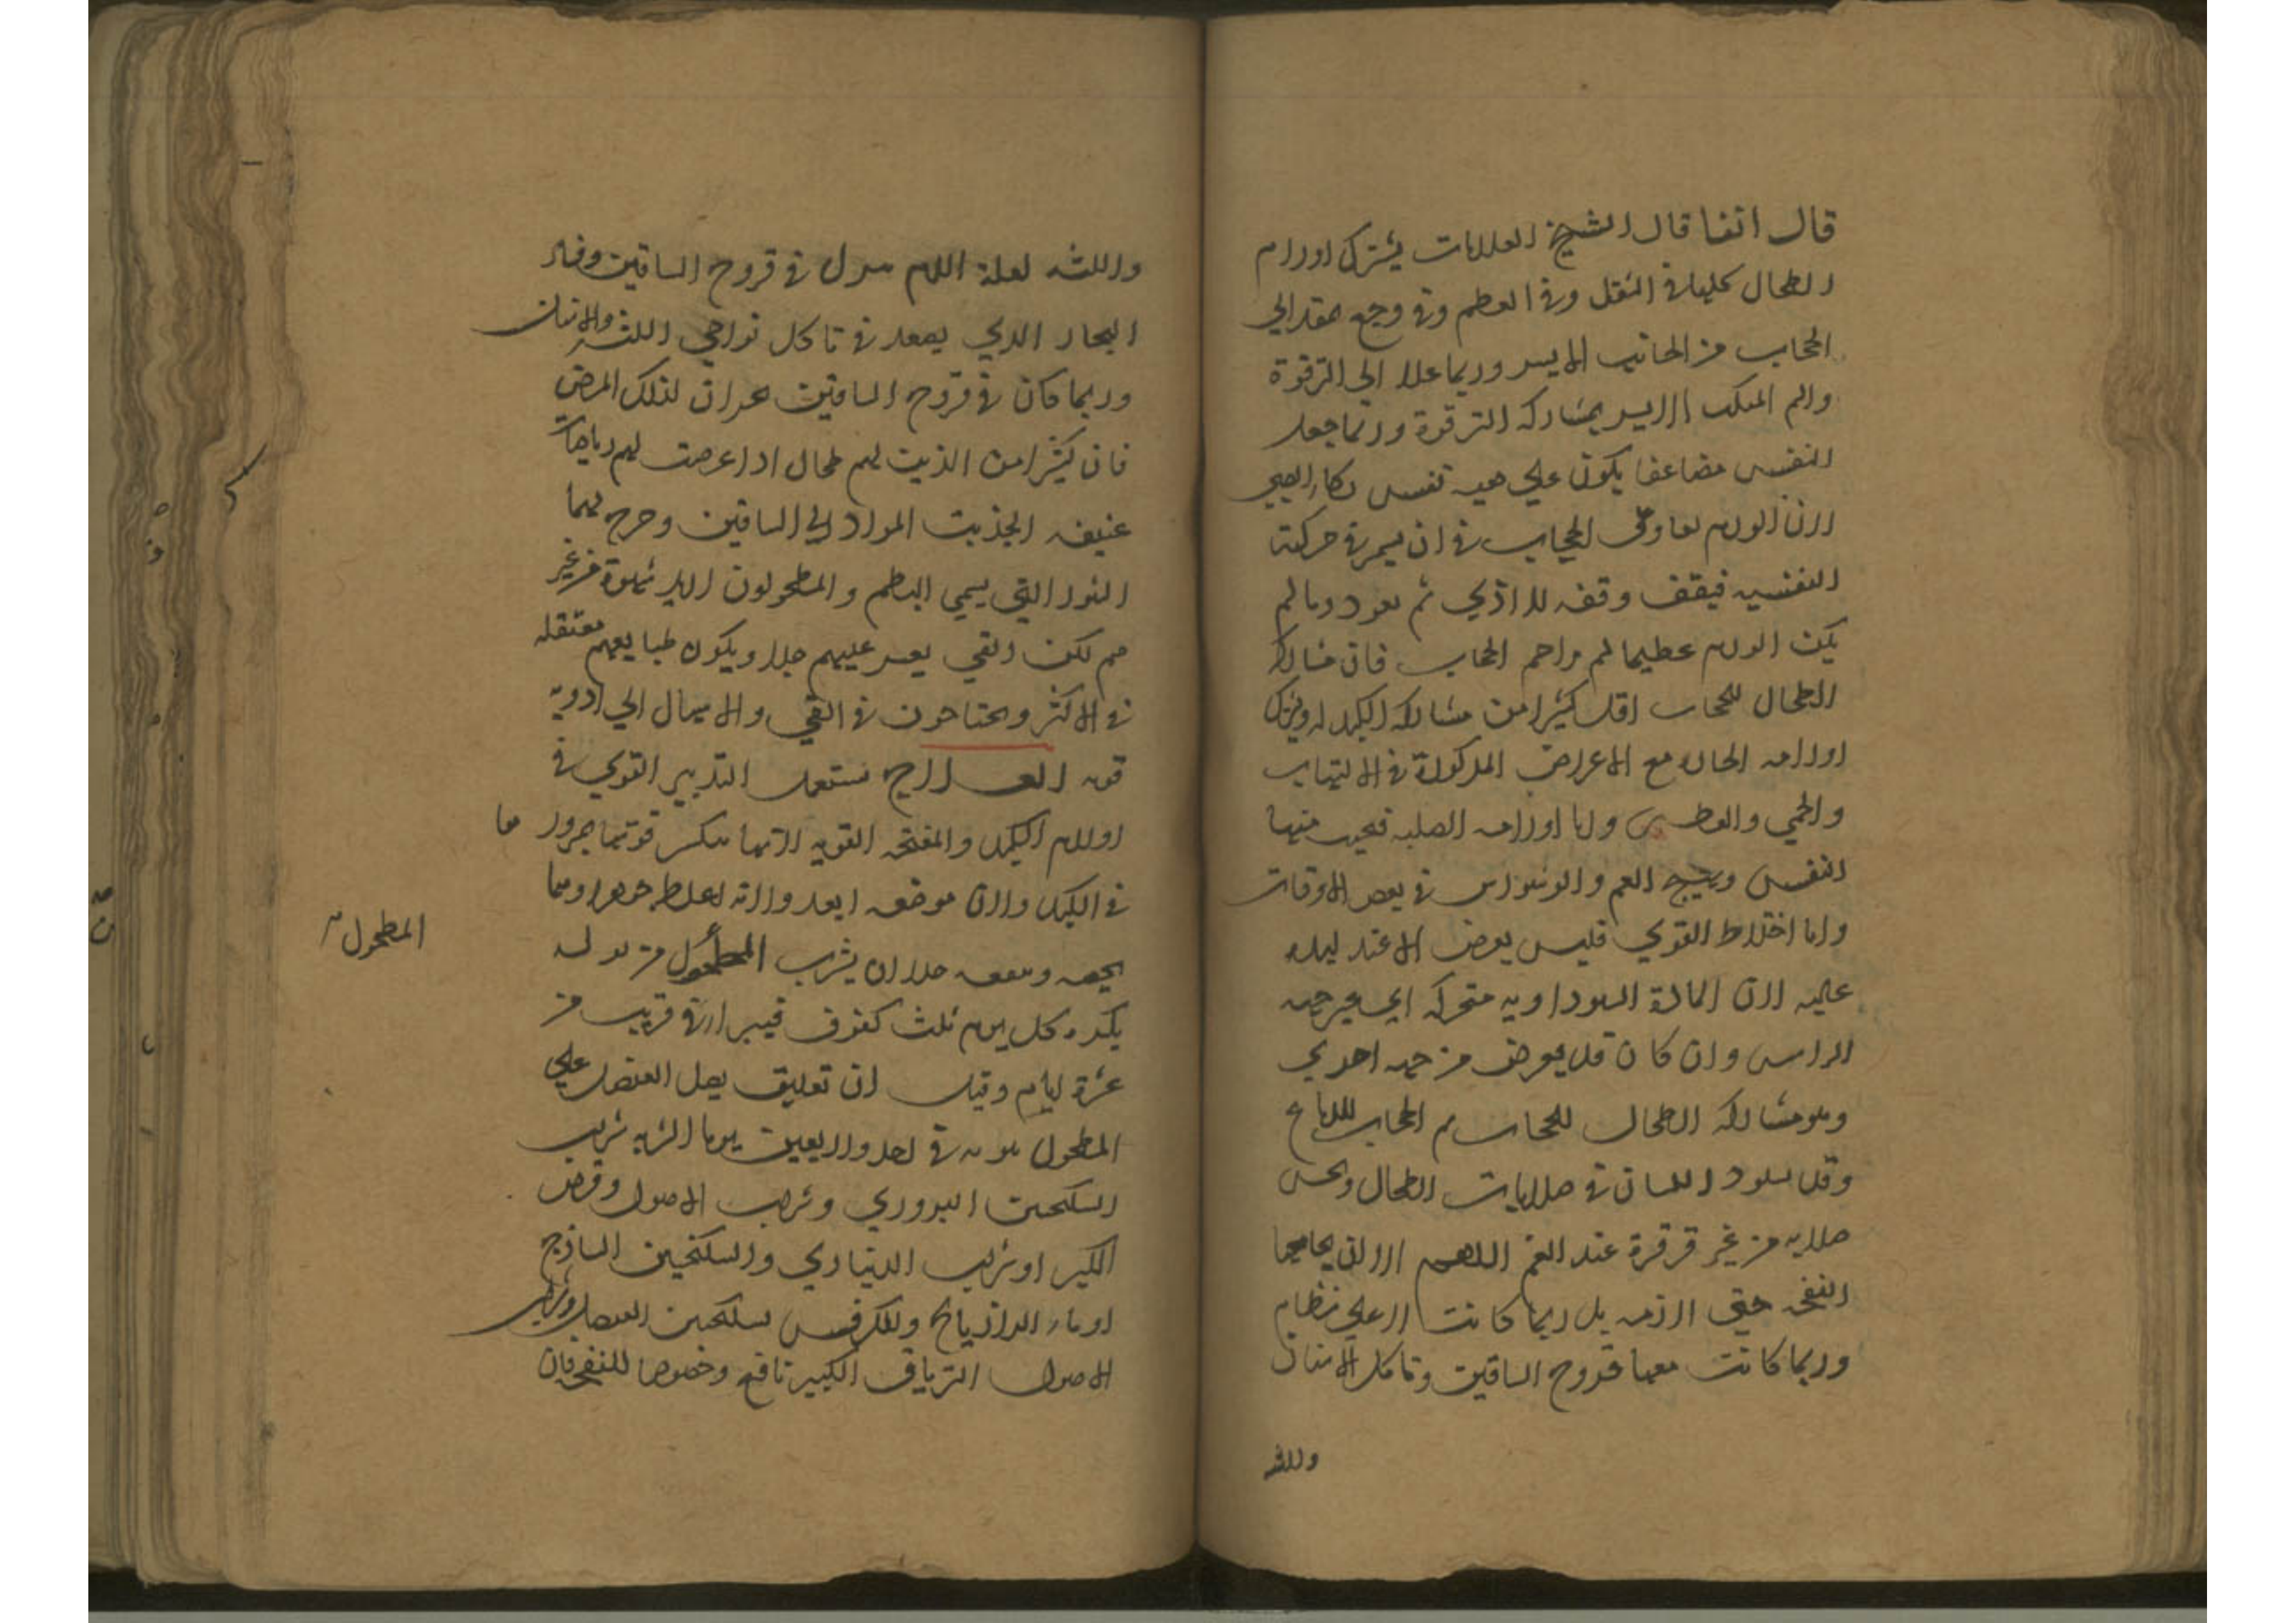 قال انفا قال الشيخ العلامات يشترك اورام
الطحال كلها في الثقل وفي العظم وفي وجع ممتد الي
الحجاب من الجانب الايسر وربما علا الي الترقوة
والم المنكب الايسر بمشاركه الترقوة وربما جعل
النفس مضاعفا يكون علي هيه تفس بكاء الصبي
لان الورم يعاوق الحجاب في ان يستمر في حركته
النفسيه فيقف وقفه للاذي ثم يعود وما لم
يكن الورم عظيما لم يزاحم الحجاب فان مشاركه
الطحال للحجاب اقل كثيرا من مشاركه الكبد له ويشترك
اورامه الحاره مع الاعراض المذكورة في الالتهاب
والحمي والعطش واما اورامه الصلبه فيحس منها
النفس ويهيج الغم والوسواس في بعض الاوقات
واما اختلاط القوي فليس يعرض الا عند
غلبه لان المادة السوداويه متحركه الي غير جهه
الراس وان كان قد يعرض من جهه اخري
وهو مشاركه الطحال للحجاب ثم الحجاب للدماغ
وقد يسود اللسان في صلابات الطحال ويحس
صلابه من غير قرقرة عند الغمز اللهم الا ان يجامعها
النفخه حتي لازمه بل ربما كانت لا علي نظام
وربما كانت معها قروح الساقين وتاكل الاسنان
واللثه
واللثه لغلظ الدم نزل في قروح الساقين وفساد
البخار الذي يصعد في تاكل نواحي اللثه والاسنان
وربما كان في قروح الساقين بحران لذلك المرض
فان كثيرا من الذين لهم طحال اذا عرضت لهم رياضات
عنيفه انجذبت المواد الي الساقين وخرج بهما
البثور التي يسمي البطم والمطحولون البد شهوة من غير
هم لكن القي يعسر عليهم جدا ويكون طبايعهم معتقله
في الاكثر ويحتاجون في القي والاسهال الي ادويه
قويه العلاج نستعمل التدبير القوي في
اورام الكبد والمفتحه القويه لانها تنكسر قوتها بمرورها
في الكبد ولان موضعه ابعد ولانه اغلظ جوهرا ومما
يخصه وينفعه جدا ان يشرب المطحول من بوله
المطحول
بكرة كل يوم ثلث كفوف فيبرا في قريب من
عشرة ايام وقيل ان تعليق بصل العنصل علي
المطحول يبريه في احد واربعين يوما الاشربه شراب
السكنجبين البزوري وشراب الاصول وقرص
الكبر او شراب الديناري والسكنجبين الساذج
او ماء الرازيانج والكرفس بسكنجبين العنصل وشراب
الاصول الترياق الكبير نافع وخصوصا للنفخ فان